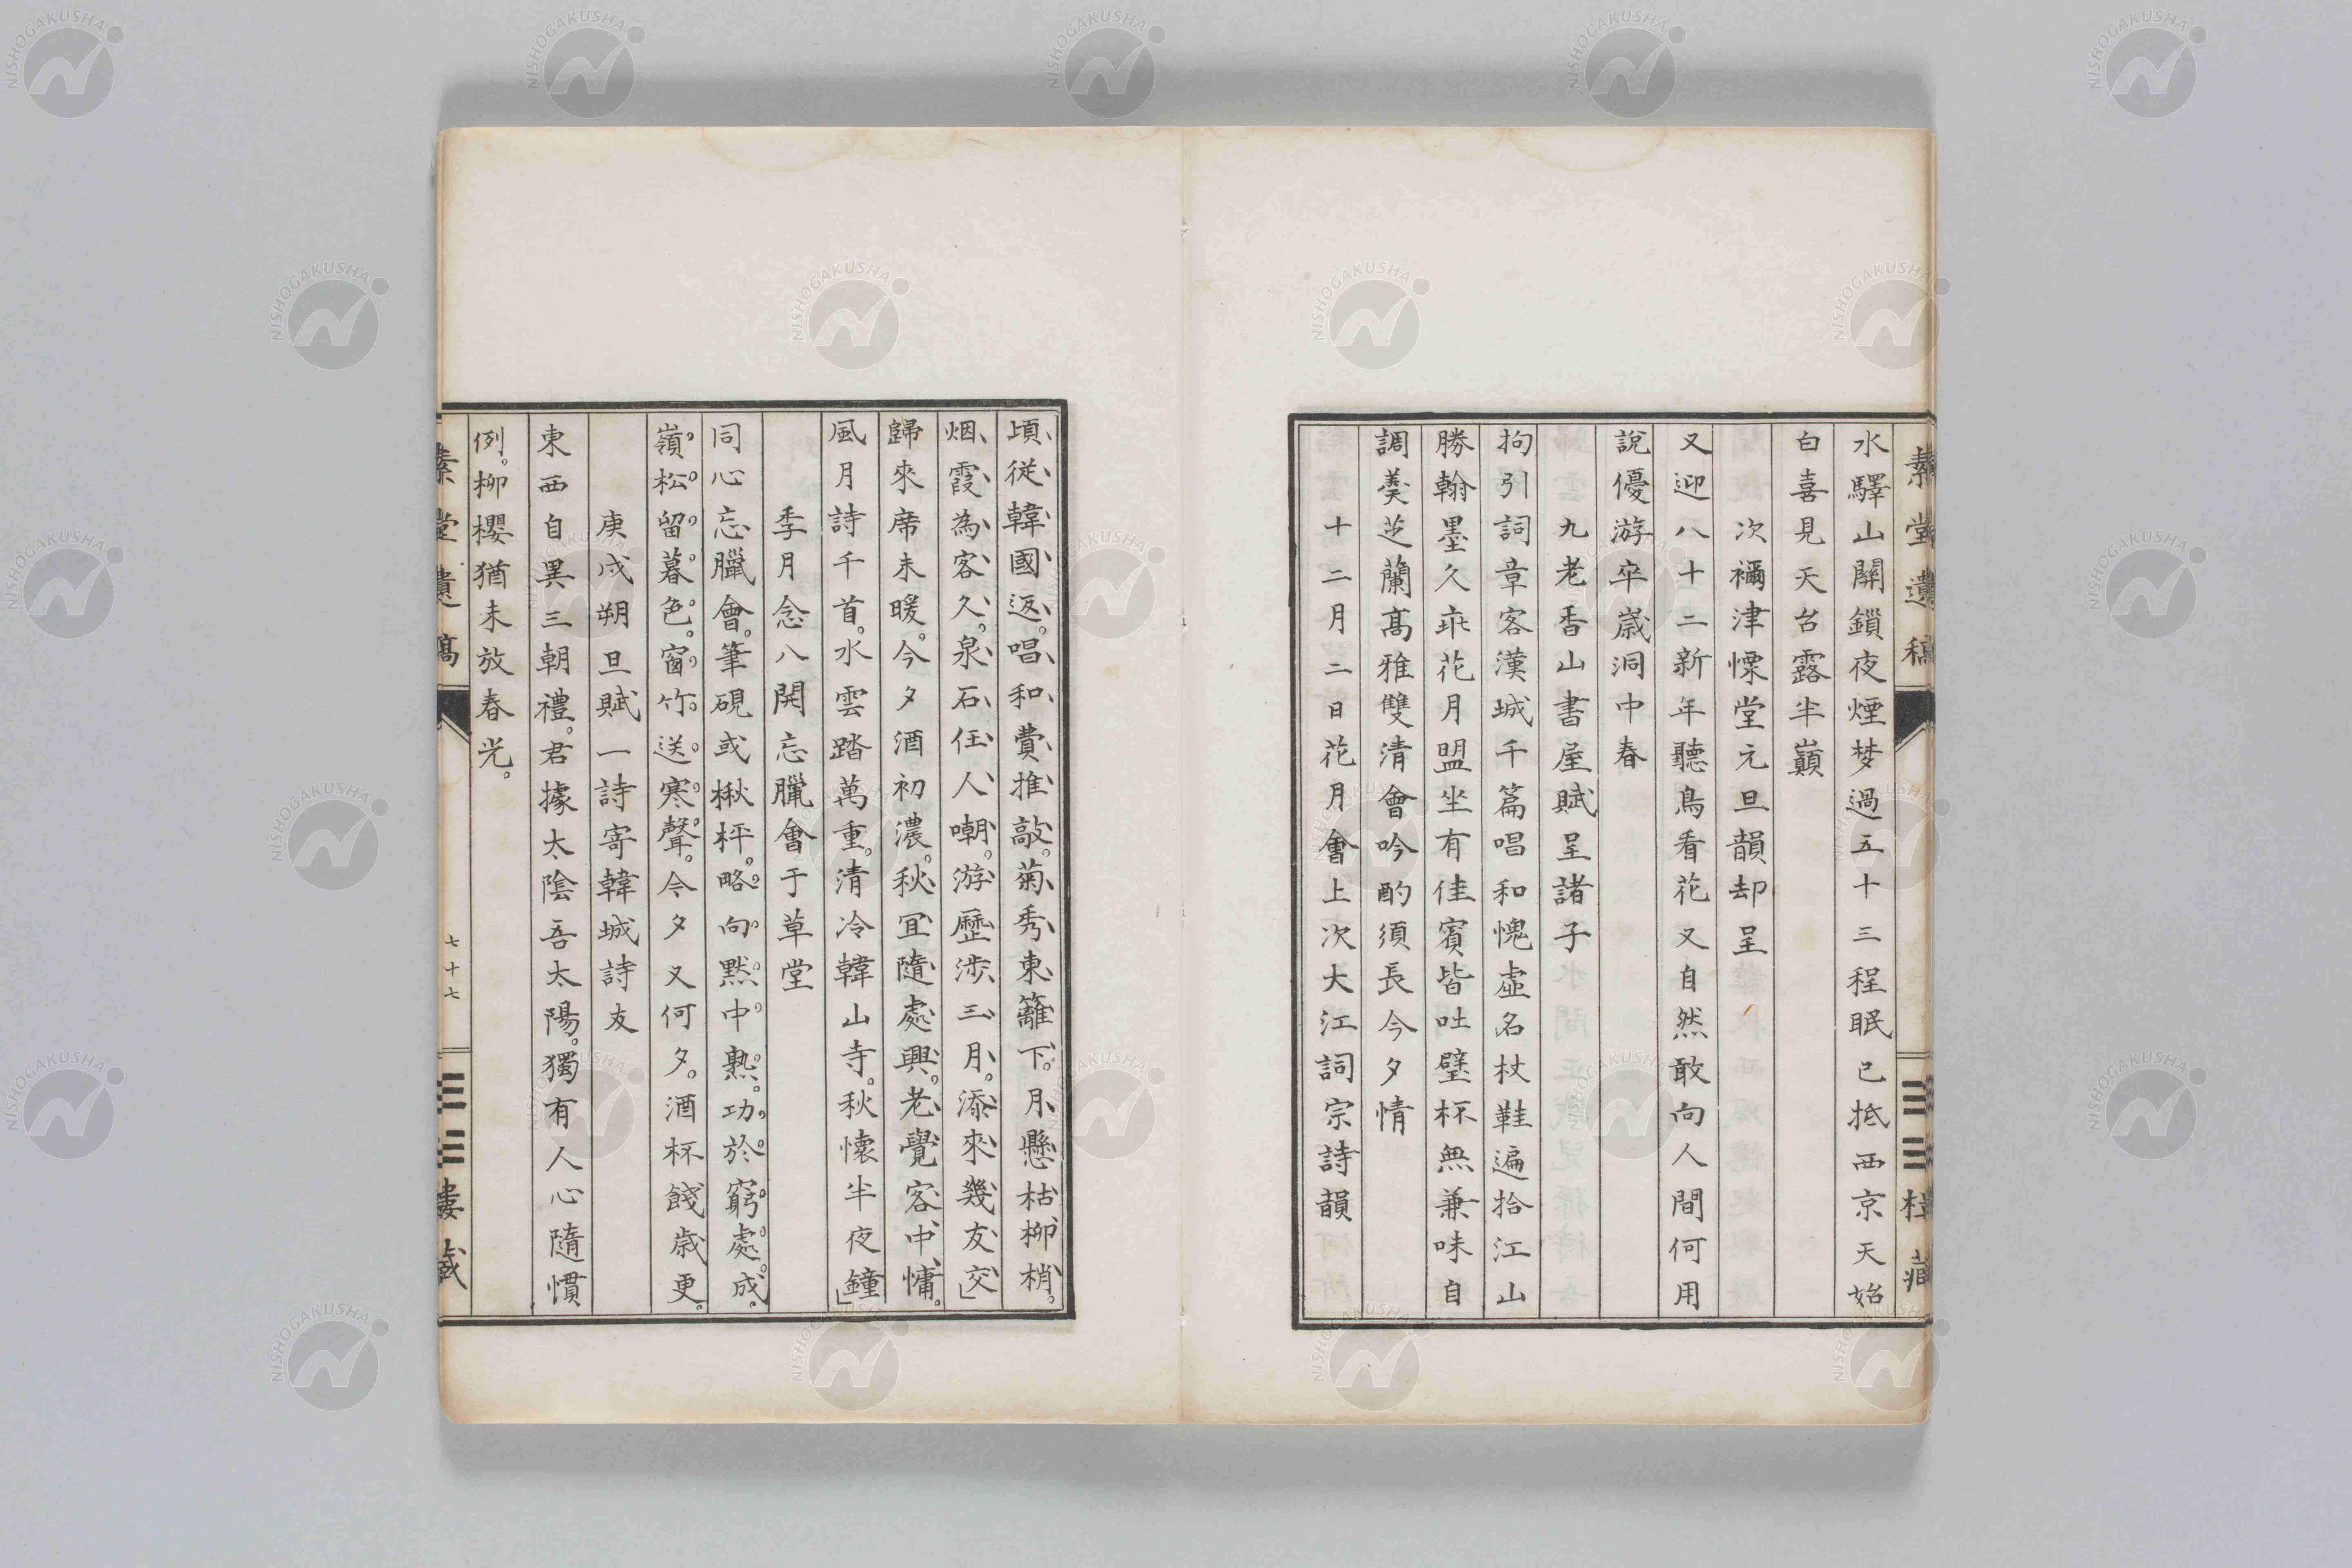 素堂遺稿
水驛山關鎖夜煙梦過五十三程眠已抵西京天始
白喜見天台露半巔
次禰津慄堂元旦韻却呈
又迎八十二新年聽鳥看花又自然敢向人間何用
說優游卒歲洞中春
九老香山書屋賦呈諸子
拘引詞章客漢城千篇唱和愧虛名杖鞋遍拾江山
勝翰墨久乖花月盟坐有佳賓皆吐璧杯無兼味自
調羮芝蘭髙雅雙清會吟酌須長今夕情
十二月二日花月會上次大江詞宗詩韻
頃從韓國返。唱和費推敲。菊秀東籬下。月懸枯柳梢。
烟霞為客久。泉石任人嘲。游歷涉三月。添來幾友交」
歸來席未暖。今夕酒初濃。秋冝隨處興。老覺客中慵。
風月詩千首。水雲踏萬重。清冷韓山寺。秋懷半夜鐘」
季月念八開忘臘會于草堂
同心忘臘會。筆硯或楸枰。略向默中熟。功於窮處成。
嶺松留暮色。窗竹送寒聲。今夕又何夕。酒杯餞歲更。
庚戌朔旦賦一詩寄韓城詩友
東西自異三朝禮。君據太陰吾太陽。獨有人心隨慣
例。柳櫻猶未放春光。
素堂遺稿
七十七
NISHOGAKUSHA